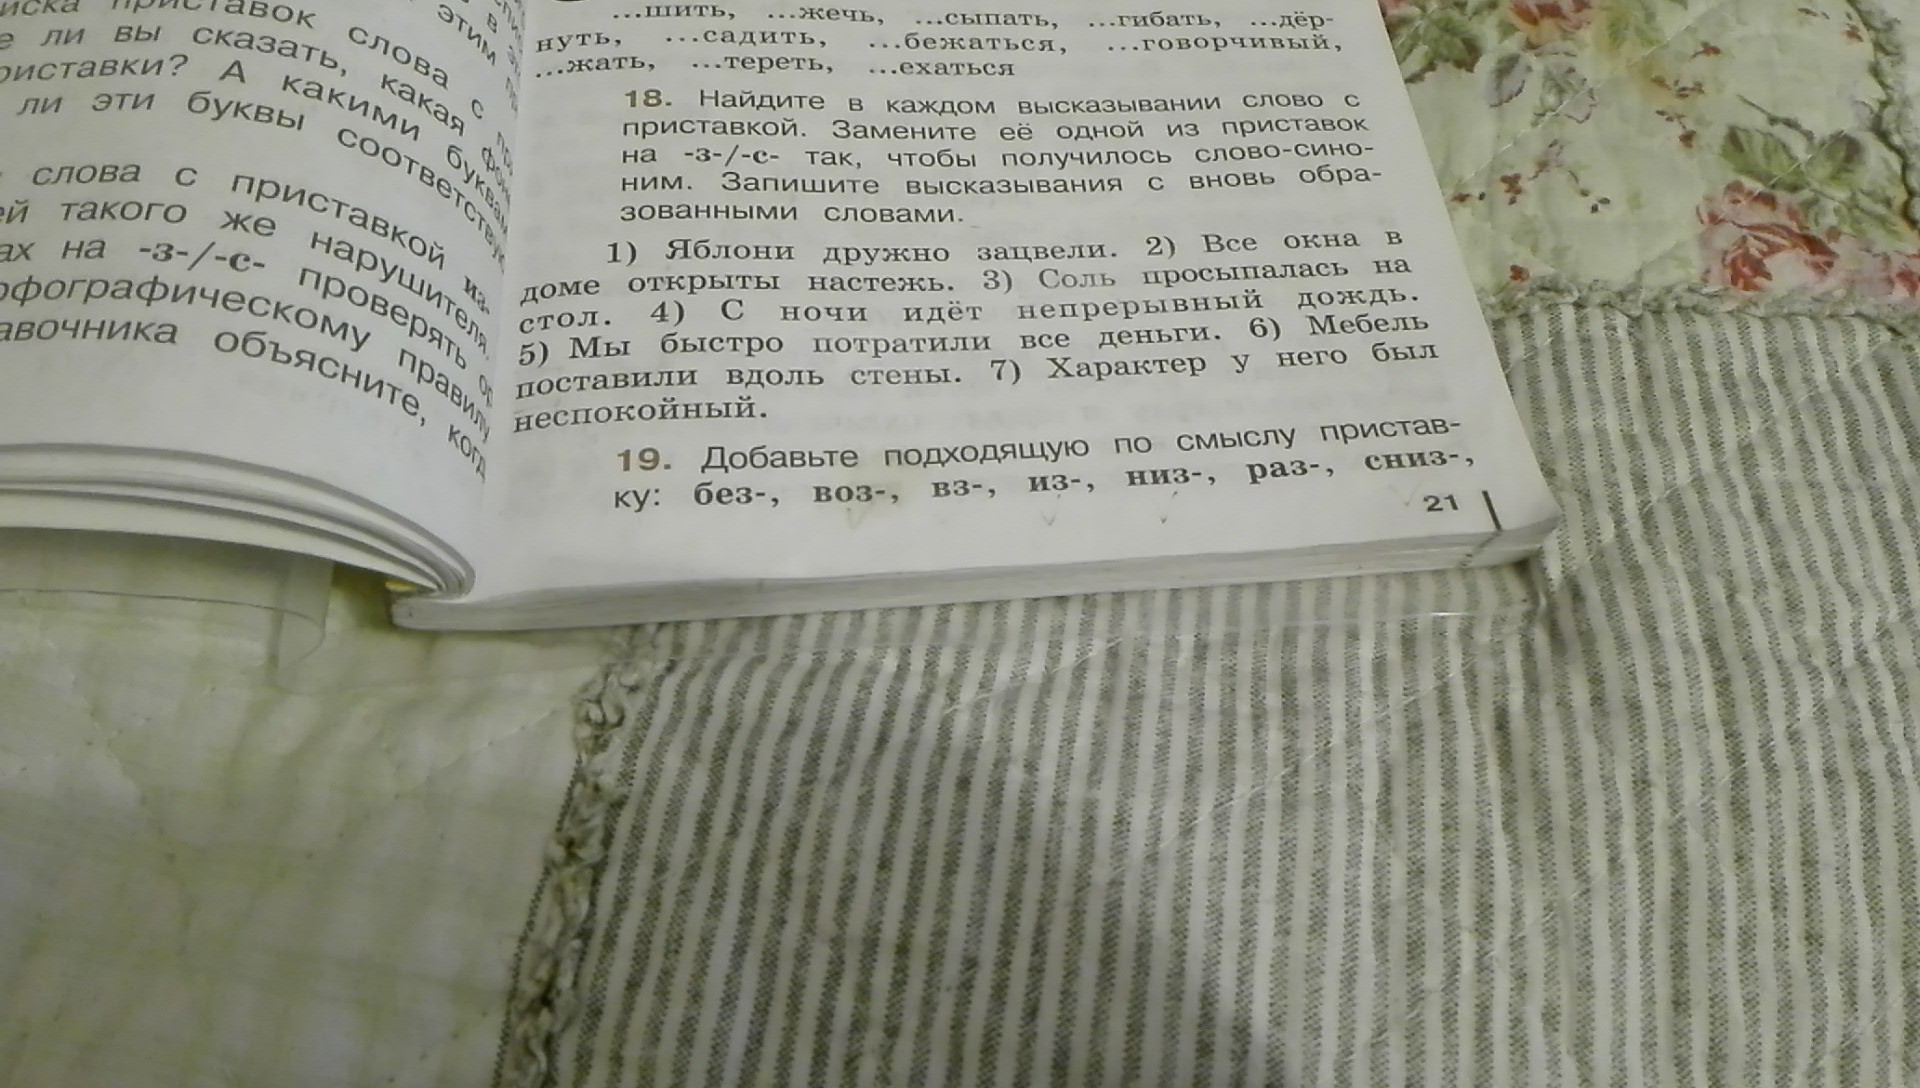 приставок слова с
е ли вы сказать, какая
риставки? А какими буквам
ли эти буквы соответству
слова с приставкой из-
ей такого же нарушителя.
ах на -з-/-с- проверять ор
рфографическому правилу
авочника объясните, когд
в
этим
...шить, ...жечь, ...сыпать, ...гибать, ...дёр-
нуть, ...садить, ...бежаться, ...говорчивый,
...жать, ...тереть, ...ехаться
18. Найдите в каждом высказывании слово с
приставкой. Замените её одной из приставок
на -з-/-с- так, чтобы получилось слово-сино-
ним. Запишите высказывания с вновь обра-
зованными словами.
1) Яблони дружно зацвели. 2) Все окна в
доме открыты настежь. 3) Соль просыпалась на
стол. 4) С ночи идёт непрерывный дождь.
5) Мы быстро потратили все деньги. 6) Мебель
поставили вдоль стены. 7) Характер у него был
неспокойный.
19. Добавьте подходящую по смыслу пристав-
ку: без-, воз-, вз-, из-, низ-, раз-, сниз-,
21